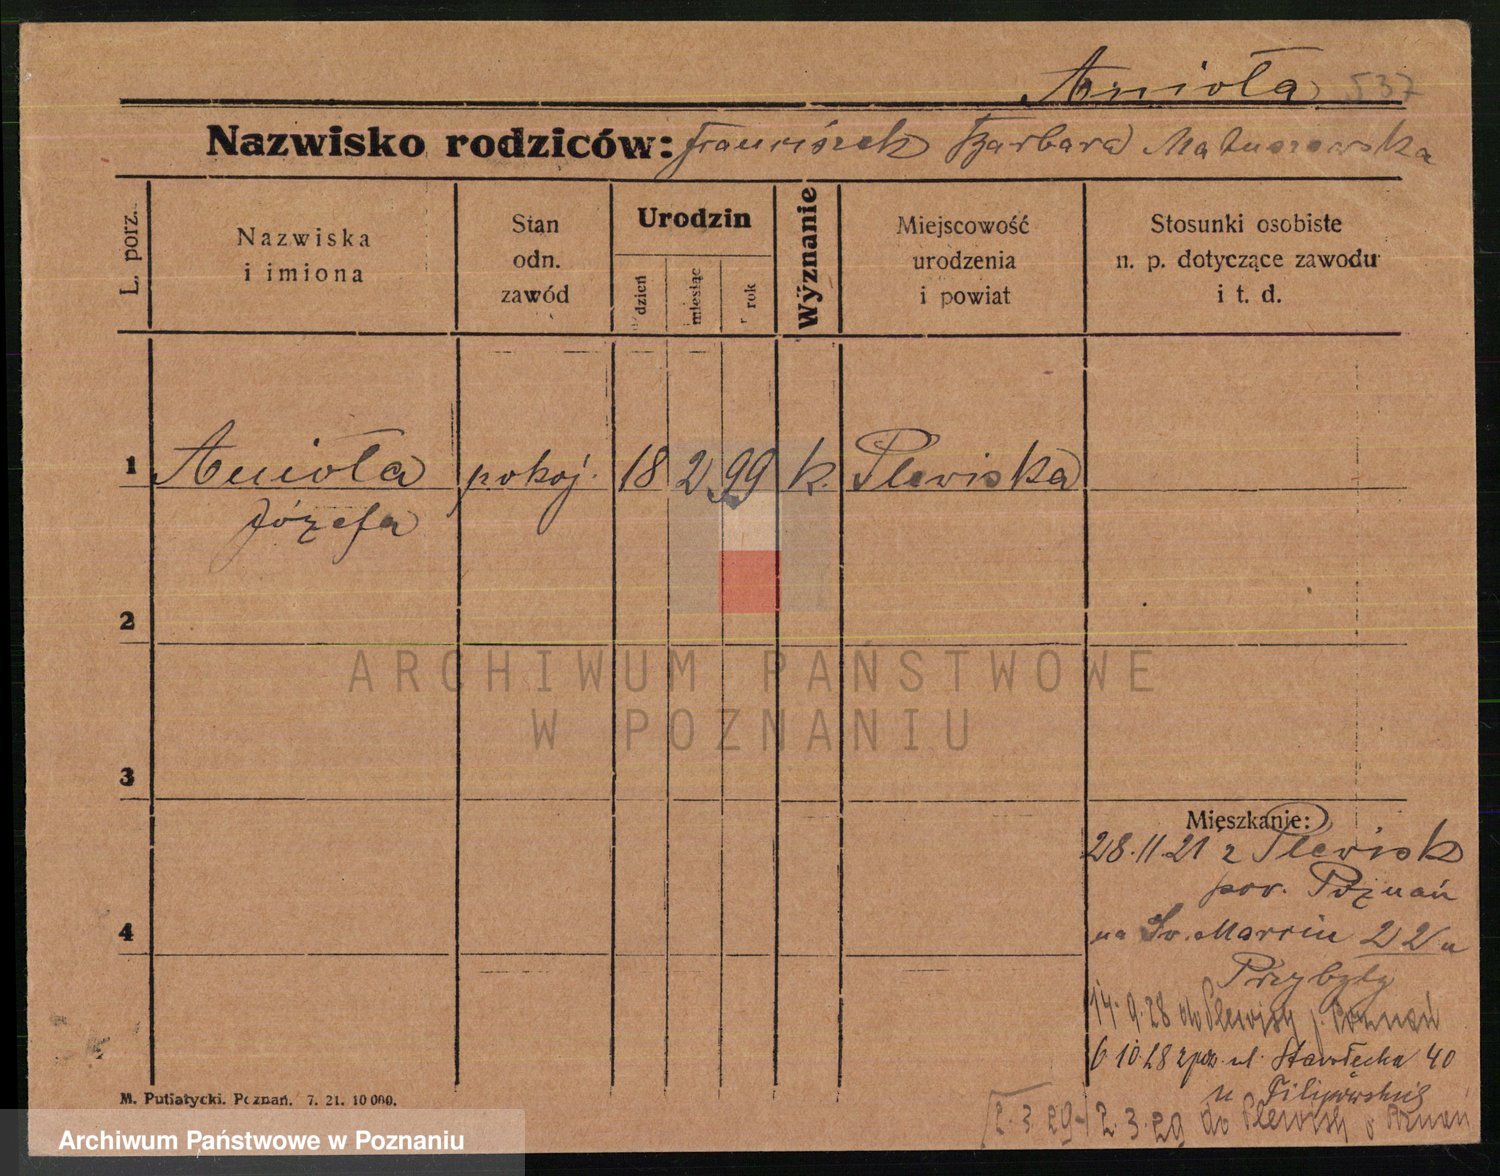 Anioła 537
Nazwisko rodziców: Franciszek Barbara Matuszewska
L. porz.
Nazwiska
i imiona
Stan
odn.
zawód
Urodzin
dzień
miesiąc
rok
Wyznanie
Miejscowość
urodzenia
i powiat
Stosunki osobiste
n. p. dotyczące zawodu
i t. d.
1 Anioła pokoj. 18 2 99 k. Plewiska
Józefa
2
3
4
Mieszkanie:
28.11.21 z Plewisk
pow. Poznań
na Św. Marcin 22 u
Przybyły
14.9.28 do Plewisk p. Poznań
6 10.28 z pow. ul. 40
u Filipowskiej
2.3.29 2.3.29 do Plewisk p Poznań
M. Putiatycki. Poznań. 7. 21. 10 000.
ARCHIWUM PAŃSTWOWE
W POZNANIU
Archiwum Państwowe w Poznaniu